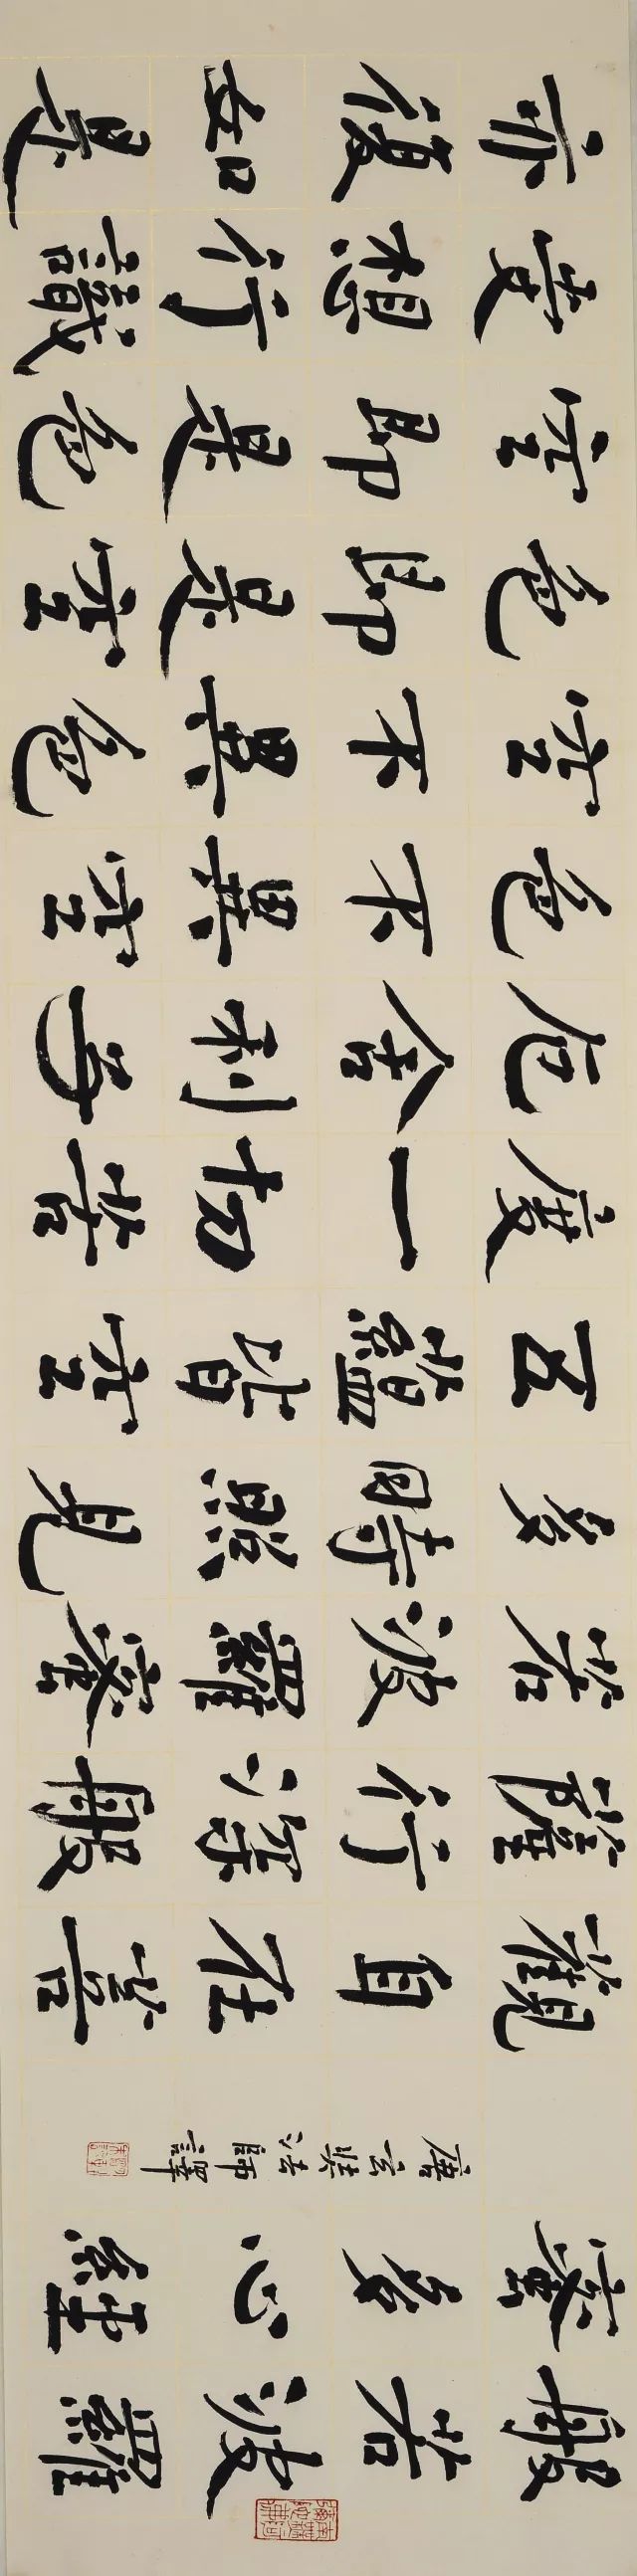 般若波羅
蜜多心經
唐玄奘法師譯
觀自在菩
薩行深般
若波羅蜜
多時照見
五蘊皆空
度一切苦
厄舍利子
色不異空
空不異色
色即是空
空即是色
受想行識
亦復如是